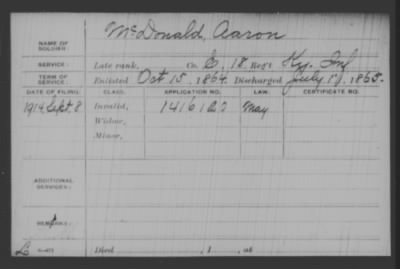 McDonald, Aaron
NAME OF SOLDIER:
SERVICE: Late rank, Co. E, 18 Reg't Ky. Inf
TERM OF SERVICE: Enlisted Oct 15, 1864. Discharged July 1865.
DATE OF FILING. CLASS. APPLICATION NO. LAW. CERTIFICATE NO.
1914 Sept. 8 Invalid, May
Widow,
Minor,
ADDITIONAL SERVICES:
REMARKS:
Died , 1 , at